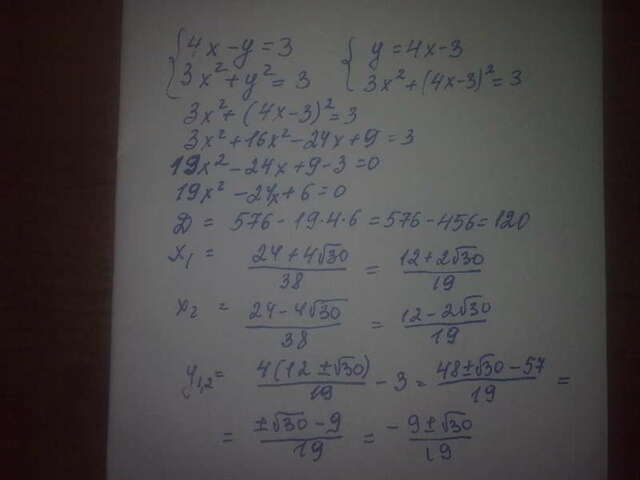 { 4x - y = 3 { y = 4x - 3
{ 3x² + y² = 3 { 3x² + (4x-3)² = 3
3x² + (4x-3)² = 3
3x² + 16x² - 24x + 9 = 3
19x² - 24x + 9 - 3 = 0
19x² - 24x + 6 = 0
D = 576 - 19·4·6 = 576 - 456 = 120
x₁ = (24 + 4√30)/38 = (12 + 2√30)/19
x₂ = (24 - 4√30)/38 = (12 - 2√30)/19
y₁,₂ = 4(12 ± √30)/19 - 3 = (48 ± √30 - 57)/19 =
= (±√30 - 9)/19 = (-9 ± √30)/19